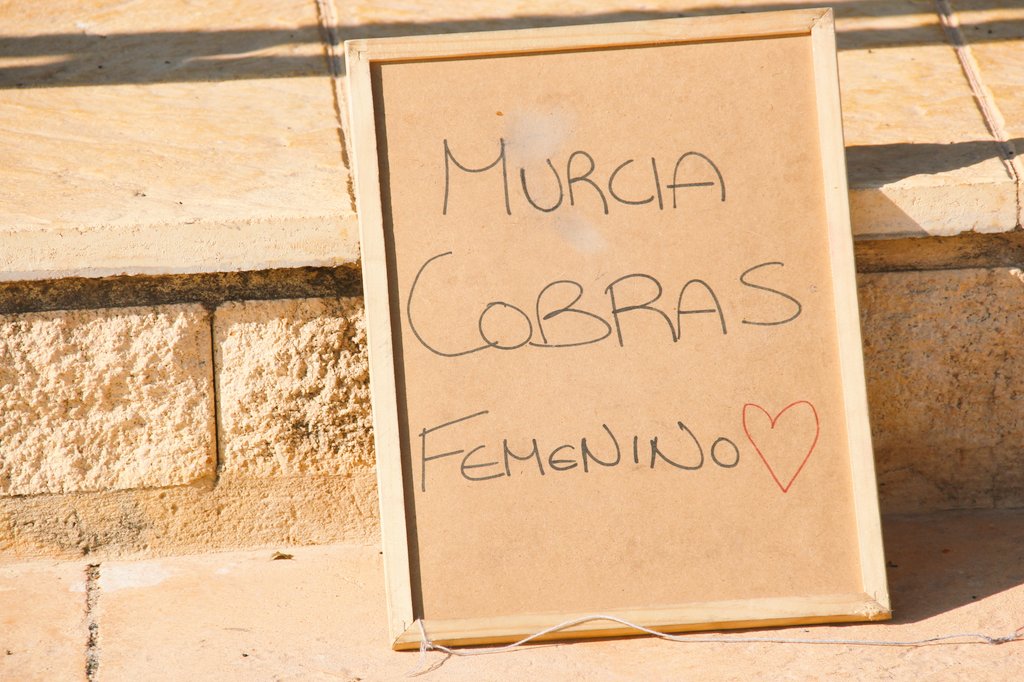 MURCIA
COBRAS
FEMENINO